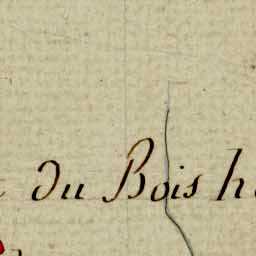 du Bois